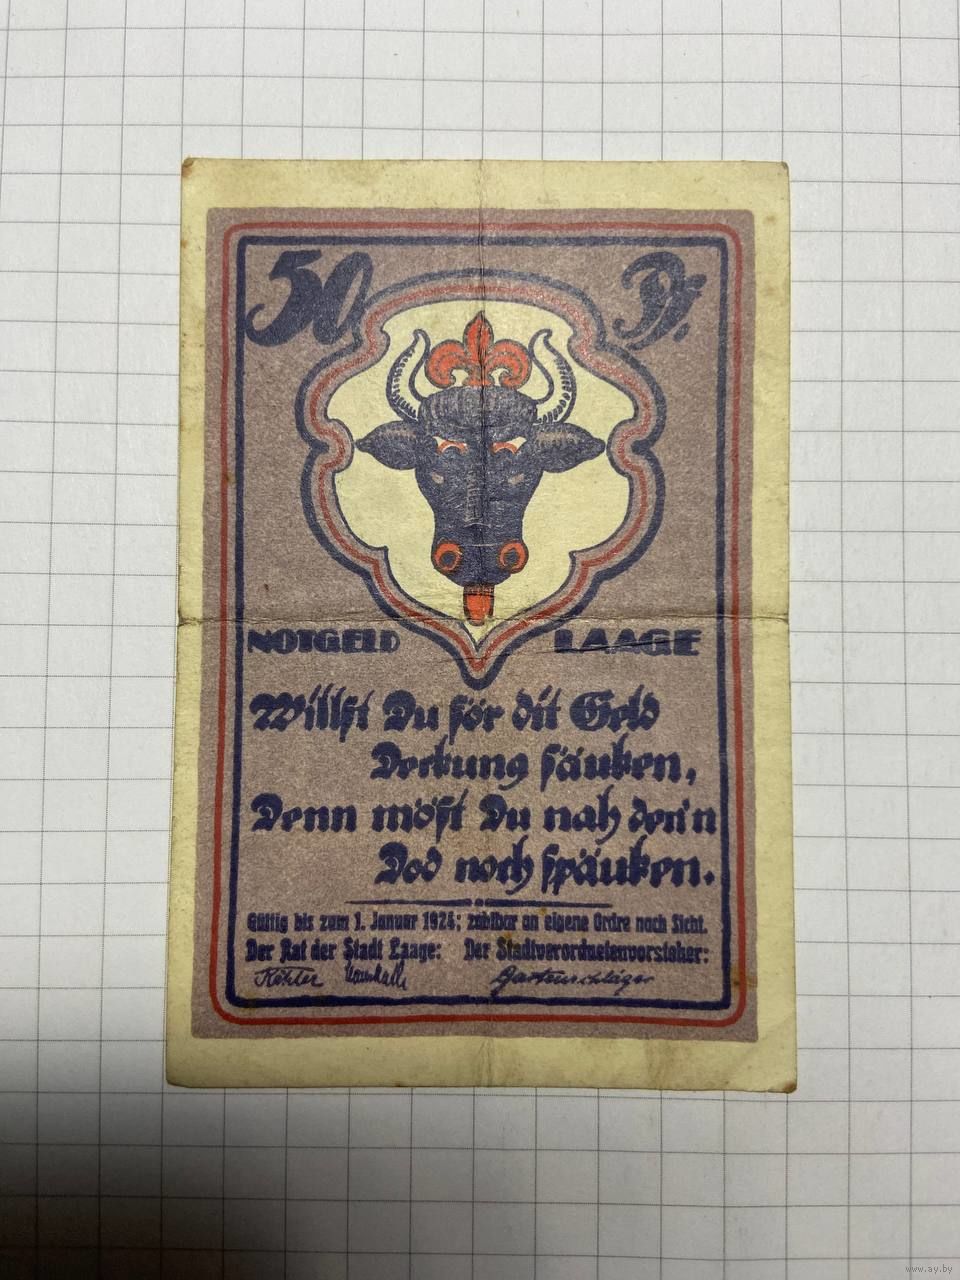 50 Pf.
NOTGELD LAAGE
Willst Du för dit Geld
Deckung säuken,
Denn möst Du nah den'n
Dod noch späuken.
Gültig bis zum 1. Januar 1924; zahlbar an eigene Ordre nach Sicht.
Der Rat der Stadt Laage: Der Stadtverordnetenvorsteher:
www.ay.by